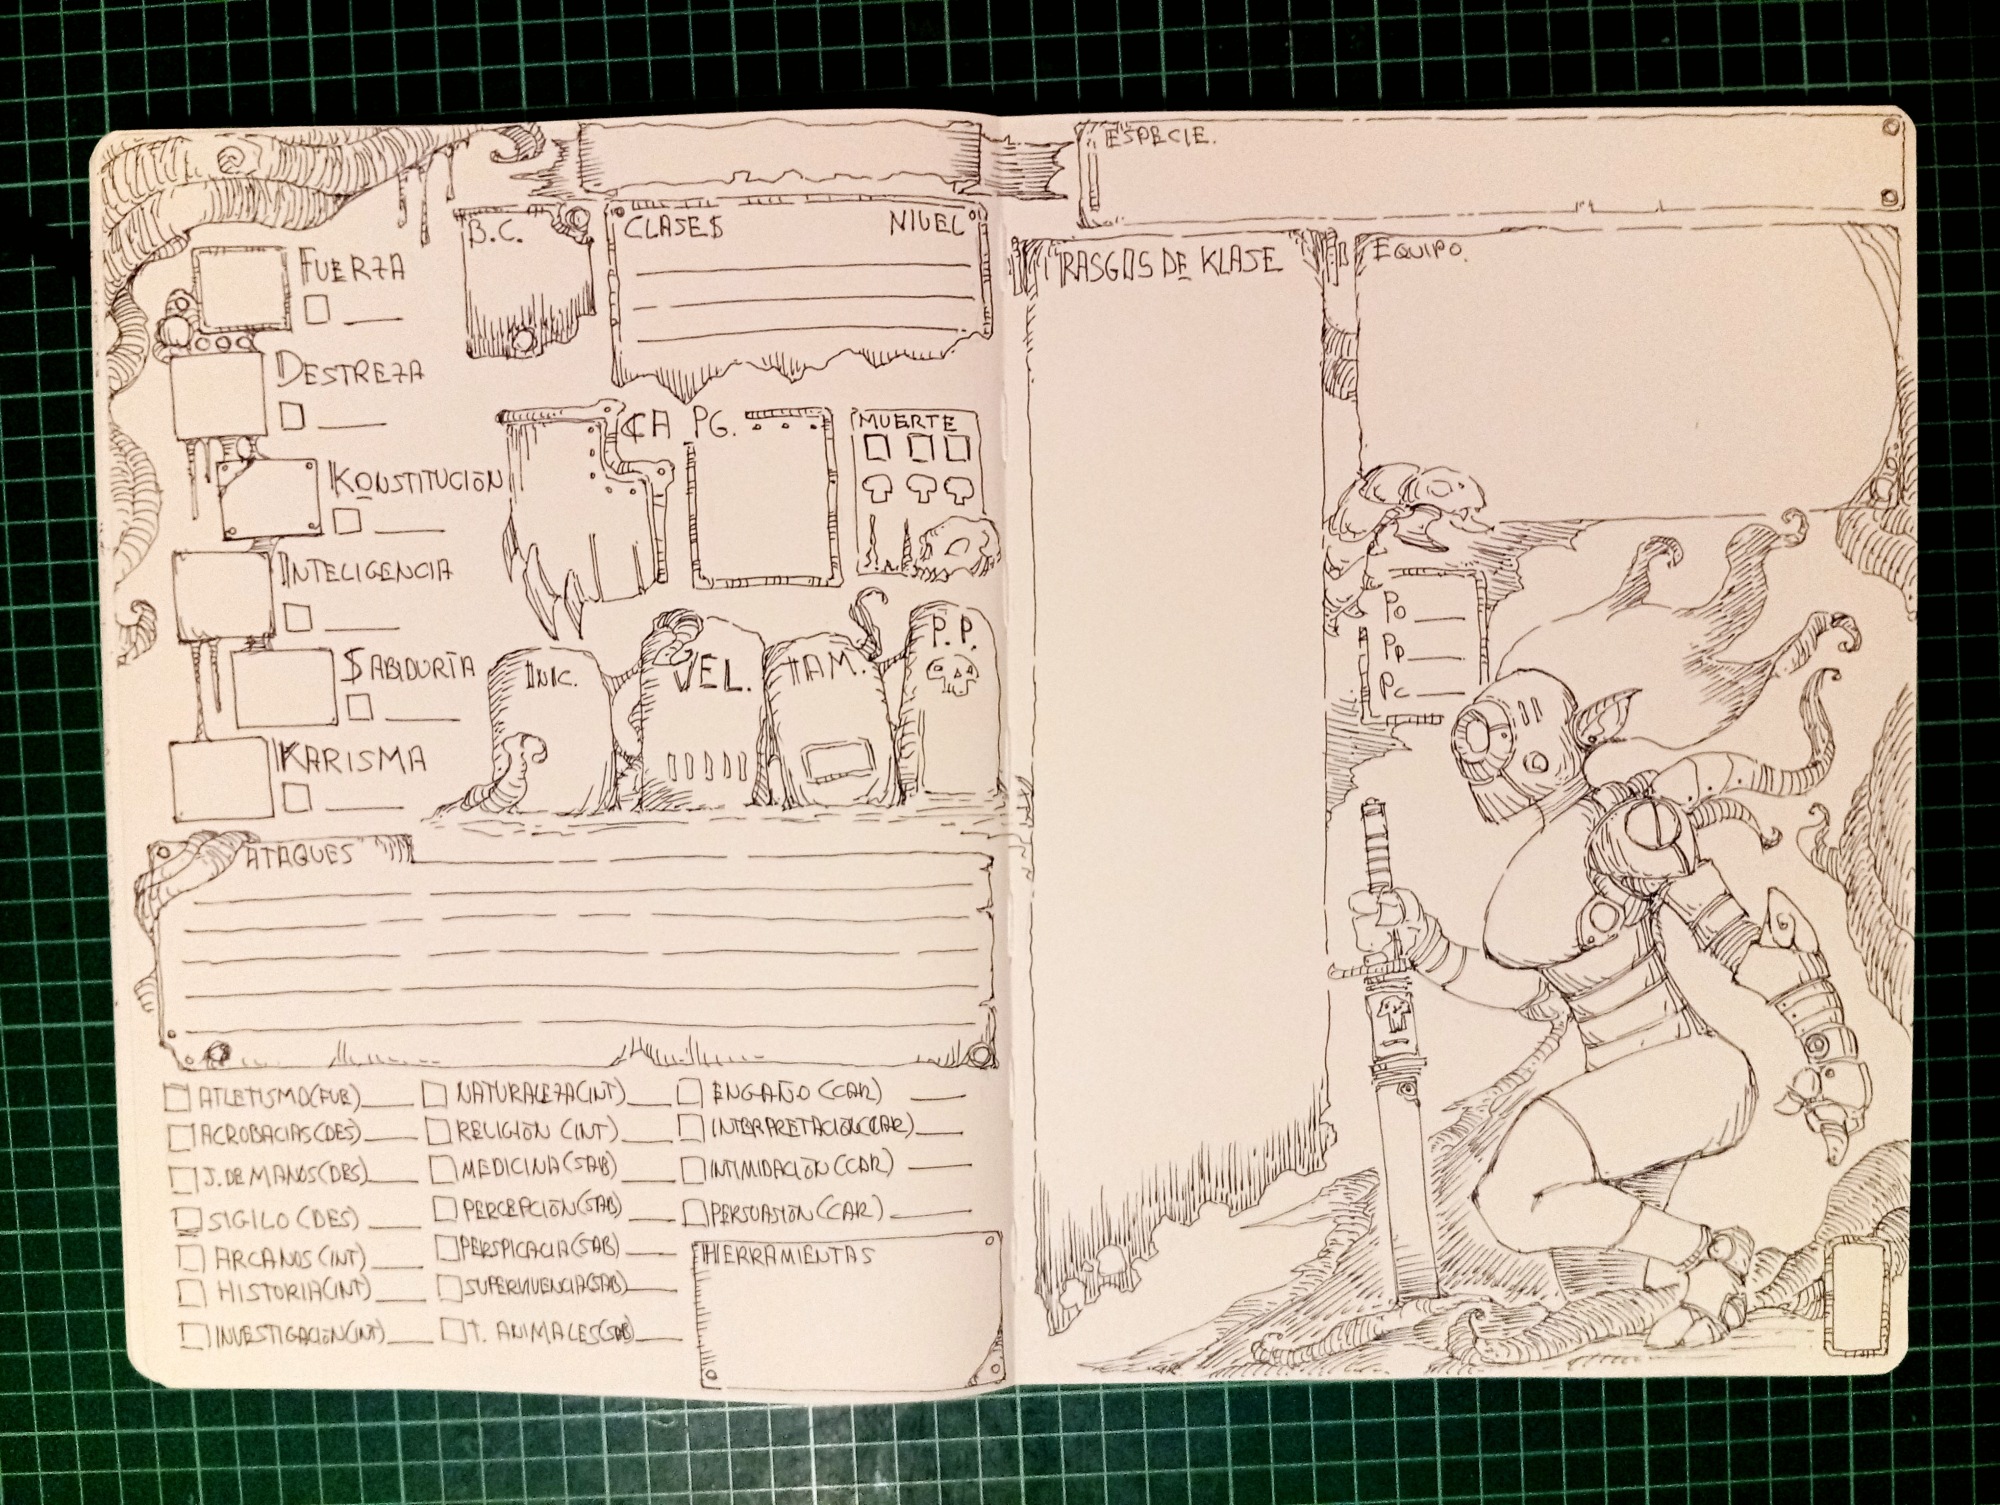 ESPECIE.
B.C.
CLASE$ NIVEL
FUERZA
DESTREZA
KONSTITUCIÓN
INTELIGENCIA
$ABIDURÍA
KARISMA
CA PG.
MUERTE
INIC.
VEL.
TAM.
P.P.
ATAQUES
ATLETISMO(FUE)
ACROBACIAS(DES)
J. DE MANOS(DES)
SIGILO (DES)
ARCANOS (INT)
HISTORIA(INT)
INVESTIGACIÓN(INT)
NATURALEZA(INT)
RELIGIÓN (INT)
MEDICINA(SAB)
PERCEPCIÓN(SAB)
PERSPICACIA(SAB)
SUPERVIVENCIA(SAB)
T. ANIMALES(SAB)
ENGAÑO (CAR)
INTERPRETACIÓN(CAR)
INTIMIDACIÓN(CAR)
PERSUASIÓN(CAR)
HERRAMIENTAS
TRASGOS DE KLASE
EQUIPO.
PO
PP
PC